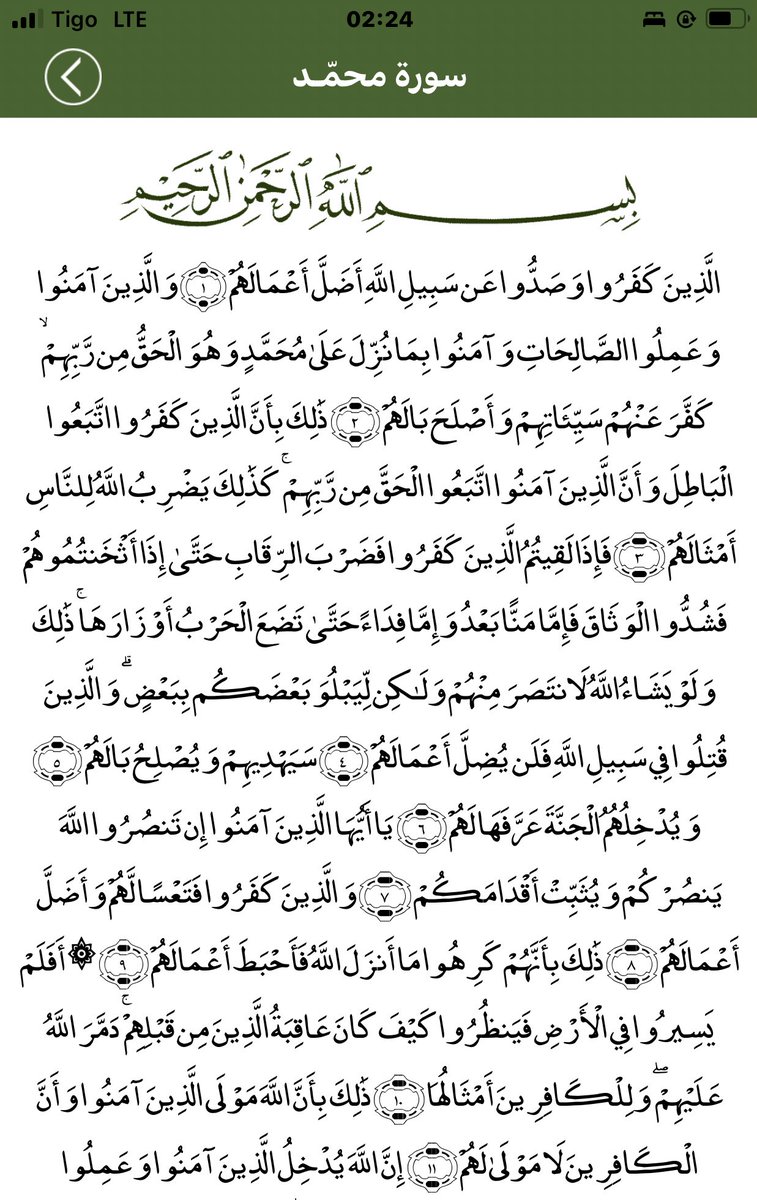 Tigo LTE 02:24
سورة محمّـد
بِسْمِ اللَّهِ الرَّحْمَٰنِ الرَّحِيمِ
الَّذِينَ كَفَرُوا وَصَدُّوا عَن سَبِيلِ اللَّهِ أَضَلَّ أَعْمَالَهُمْ ١ وَالَّذِينَ آمَنُوا
وَعَمِلُوا الصَّالِحَاتِ وَآمَنُوا بِمَا نُزِّلَ عَلَىٰ مُحَمَّدٍ وَهُوَ الْحَقُّ مِن رَّبِّهِمْ ۙ
كَفَّرَ عَنْهُمْ سَيِّئَاتِهِمْ وَأَصْلَحَ بَالَهُمْ ٢ ذَٰلِكَ بِأَنَّ الَّذِينَ كَفَرُوا اتَّبَعُوا
الْبَاطِلَ وَأَنَّ الَّذِينَ آمَنُوا اتَّبَعُوا الْحَقَّ مِن رَّبِّهِمْ ۚ كَذَٰلِكَ يَضْرِبُ اللَّهُ لِلنَّاسِ
أَمْثَالَهُمْ ٣ فَإِذَا لَقِيتُمُ الَّذِينَ كَفَرُوا فَضَرْبَ الرِّقَابِ حَتَّىٰ إِذَا أَثْخَنتُمُوهُمْ
فَشُدُّوا الْوَثَاقَ فَإِمَّا مَنًّا بَعْدُ وَإِمَّا فِدَاءً حَتَّىٰ تَضَعَ الْحَرْبُ أَوْزَارَهَا ۚ ذَٰلِكَ
وَلَوْ يَشَاءُ اللَّهُ لَانتَصَرَ مِنْهُمْ وَلَٰكِن لِّيَبْلُوَ بَعْضَكُم بِبَعْضٍ ۗ وَالَّذِينَ
قُتِلُوا فِي سَبِيلِ اللَّهِ فَلَن يُضِلَّ أَعْمَالَهُمْ ٤ سَيَهْدِيهِمْ وَيُصْلِحُ بَالَهُمْ ٥
وَيُدْخِلُهُمُ الْجَنَّةَ عَرَّفَهَا لَهُمْ ٦ يَا أَيُّهَا الَّذِينَ آمَنُوا إِن تَنصُرُوا اللَّهَ
يَنصُرْكُمْ وَيُثَبِّتْ أَقْدَامَكُمْ ٧ وَالَّذِينَ كَفَرُوا فَتَعْسًا لَّهُمْ وَأَضَلَّ
أَعْمَالَهُمْ ٨ ذَٰلِكَ بِأَنَّهُمْ كَرِهُوا مَا أَنزَلَ اللَّهُ فَأَحْبَطَ أَعْمَالَهُمْ ٩ ۞ أَفَلَمْ
يَسِيرُوا فِي الْأَرْضِ فَيَنظُرُوا كَيْفَ كَانَ عَاقِبَةُ الَّذِينَ مِن قَبْلِهِمْ ۚ دَمَّرَ اللَّهُ
عَلَيْهِمْ ۖ وَلِلْكَافِرِينَ أَمْثَالُهَا ١٠ ذَٰلِكَ بِأَنَّ اللَّهَ مَوْلَى الَّذِينَ آمَنُوا وَأَنَّ
الْكَافِرِينَ لَا مَوْلَىٰ لَهُمْ ١١ إِنَّ اللَّهَ يُدْخِلُ الَّذِينَ آمَنُوا وَعَمِلُوا